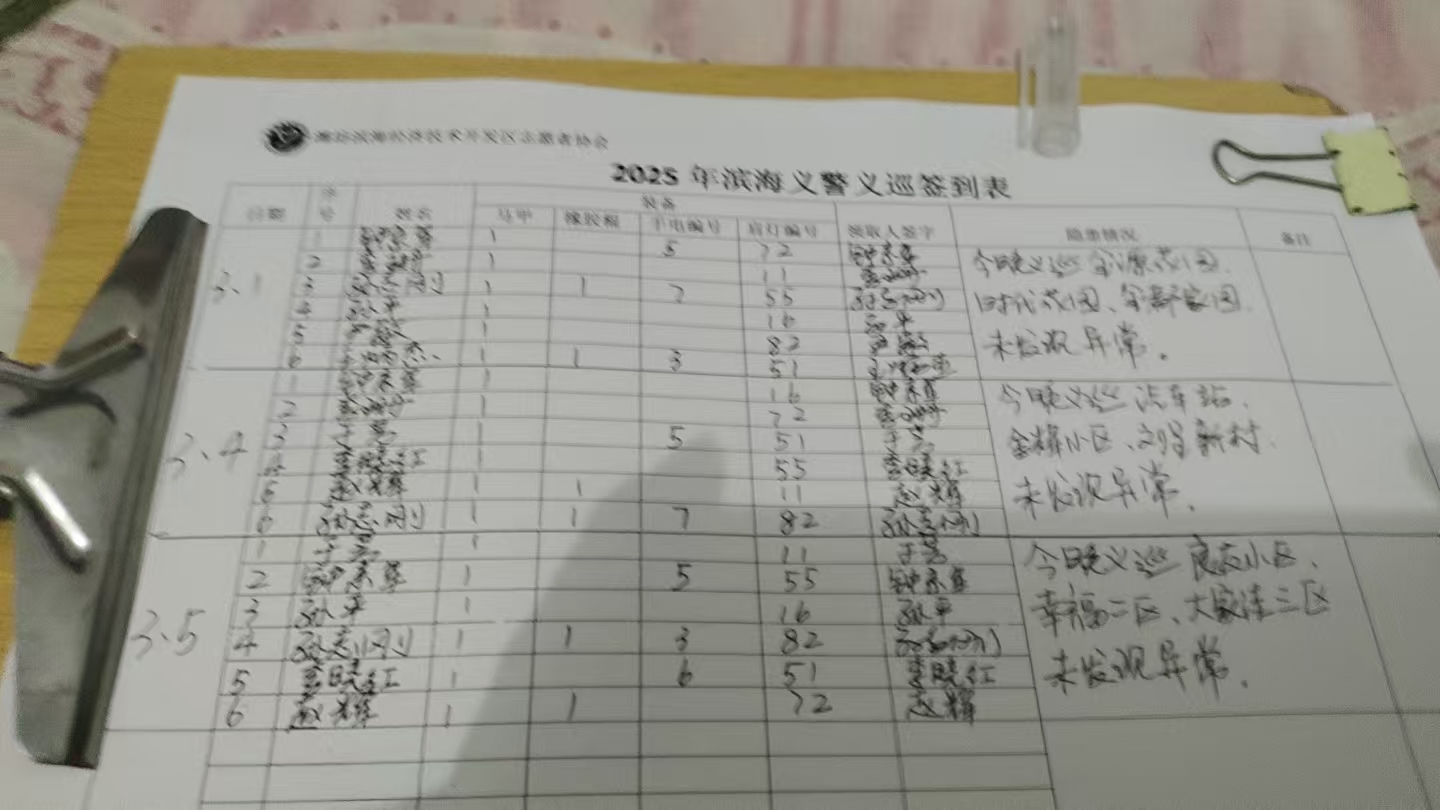 潍坊滨海经济技术开发区志愿者协会
2025 年滨海义警义巡签到表
日期 序号 姓名 装备 领取人签字 隐患情况 备注
马甲 橡胶棍 手电编号 肩灯编号
3.1
1 1 5 72
2 1 11
3 1 1 7 55
4 孙平 1 16 孙平
5 1 82
6 1 1 3 51
今晚义巡金源花园
时代花园、
未发现异常。
3.4
1 1 16
2 1 72
3 于亮 1 5 51 于亮
4 李晓红 1 55 李晓红
5 赵辉 1 1 11 赵辉
6 孙志刚 1 1 7 82 孙志刚
今晚义巡汽车站、
金辉小区、新村
未发现异常。
3.5
1 于亮 1 11 于亮
2 1 5 55
3 孙平 1 16 孙平
4 孙志刚 1 1 3 82 孙志刚
5 李晓红 1 6 51 李晓红
6 赵辉 1 1 72 赵辉
今晚义巡良友小区、
幸福二区、大家洼三区
未发现异常。